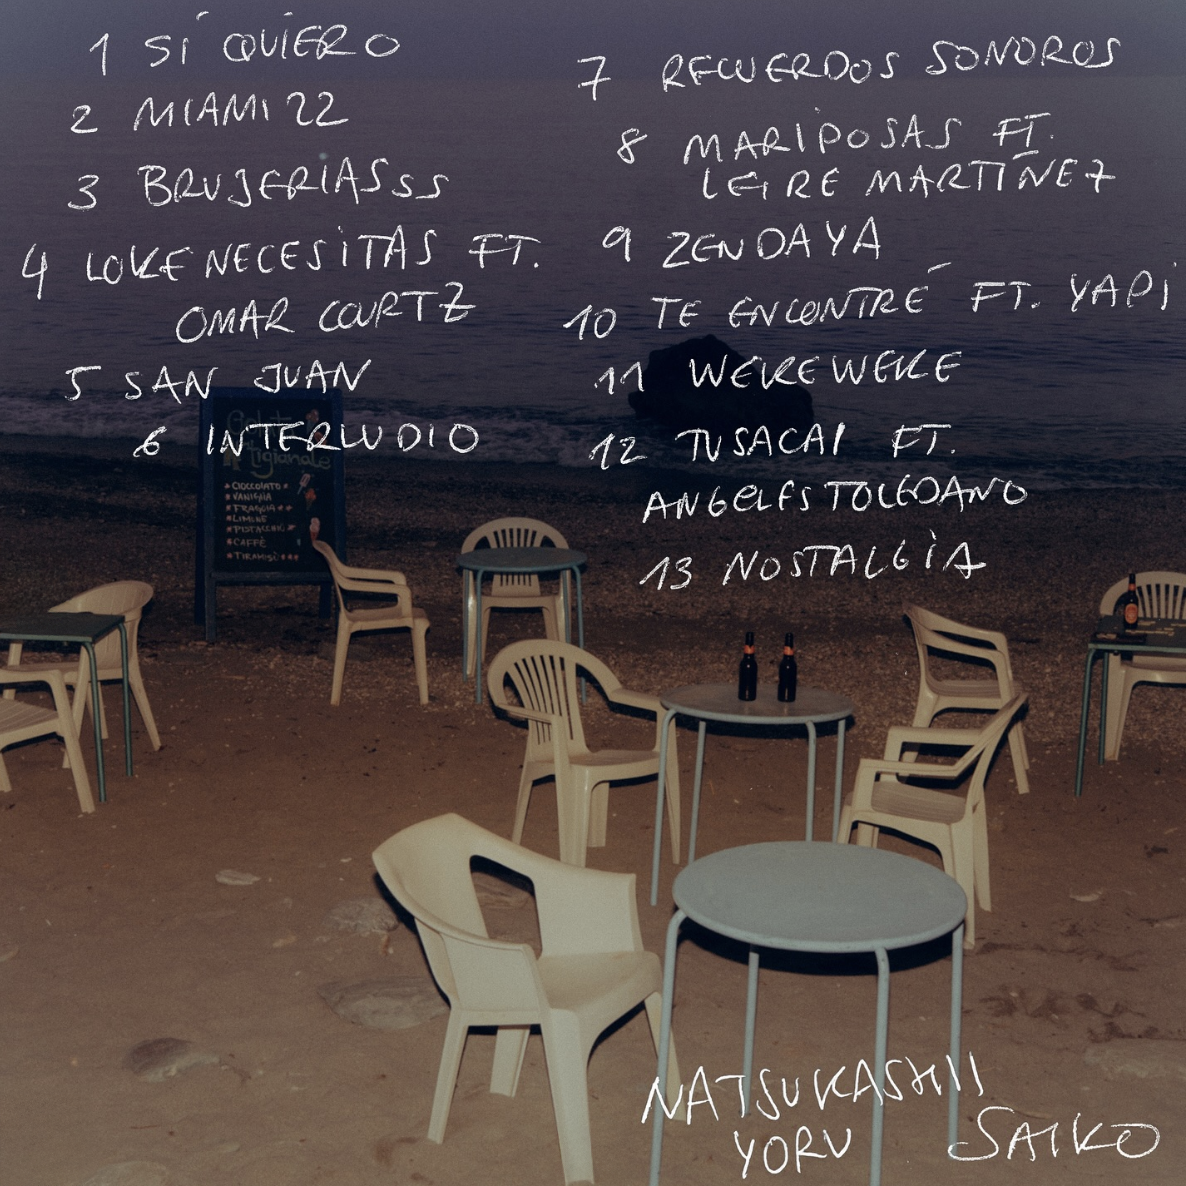 1 SÍ QUIERO
2 MIAMI 22
3 BRUJERIASSS
4 LOKENECESITAS FT.
OMAR COURTZ
5 SAN JUAN
6 INTERLUDIO
7 RECUERDOS SONOROS
8 MARIPOSAS FT.
LEIRE MARTÍNEZ
9 ZENDAYA
10 TE ENCONTRÉ FT. YAPI
11 WEKEWEKE
12 TUSACAI FT.
ANGELES TOLEDANO
13 NOSTALGIA
Gelato
Artigianale
CIOCCOLATO
VANIGLIA
FRAGOLA
LIMONE
PISTACCHIO
CAFFÈ
TIRAMISÙ
NATSUKASHII
YORU SAIKO